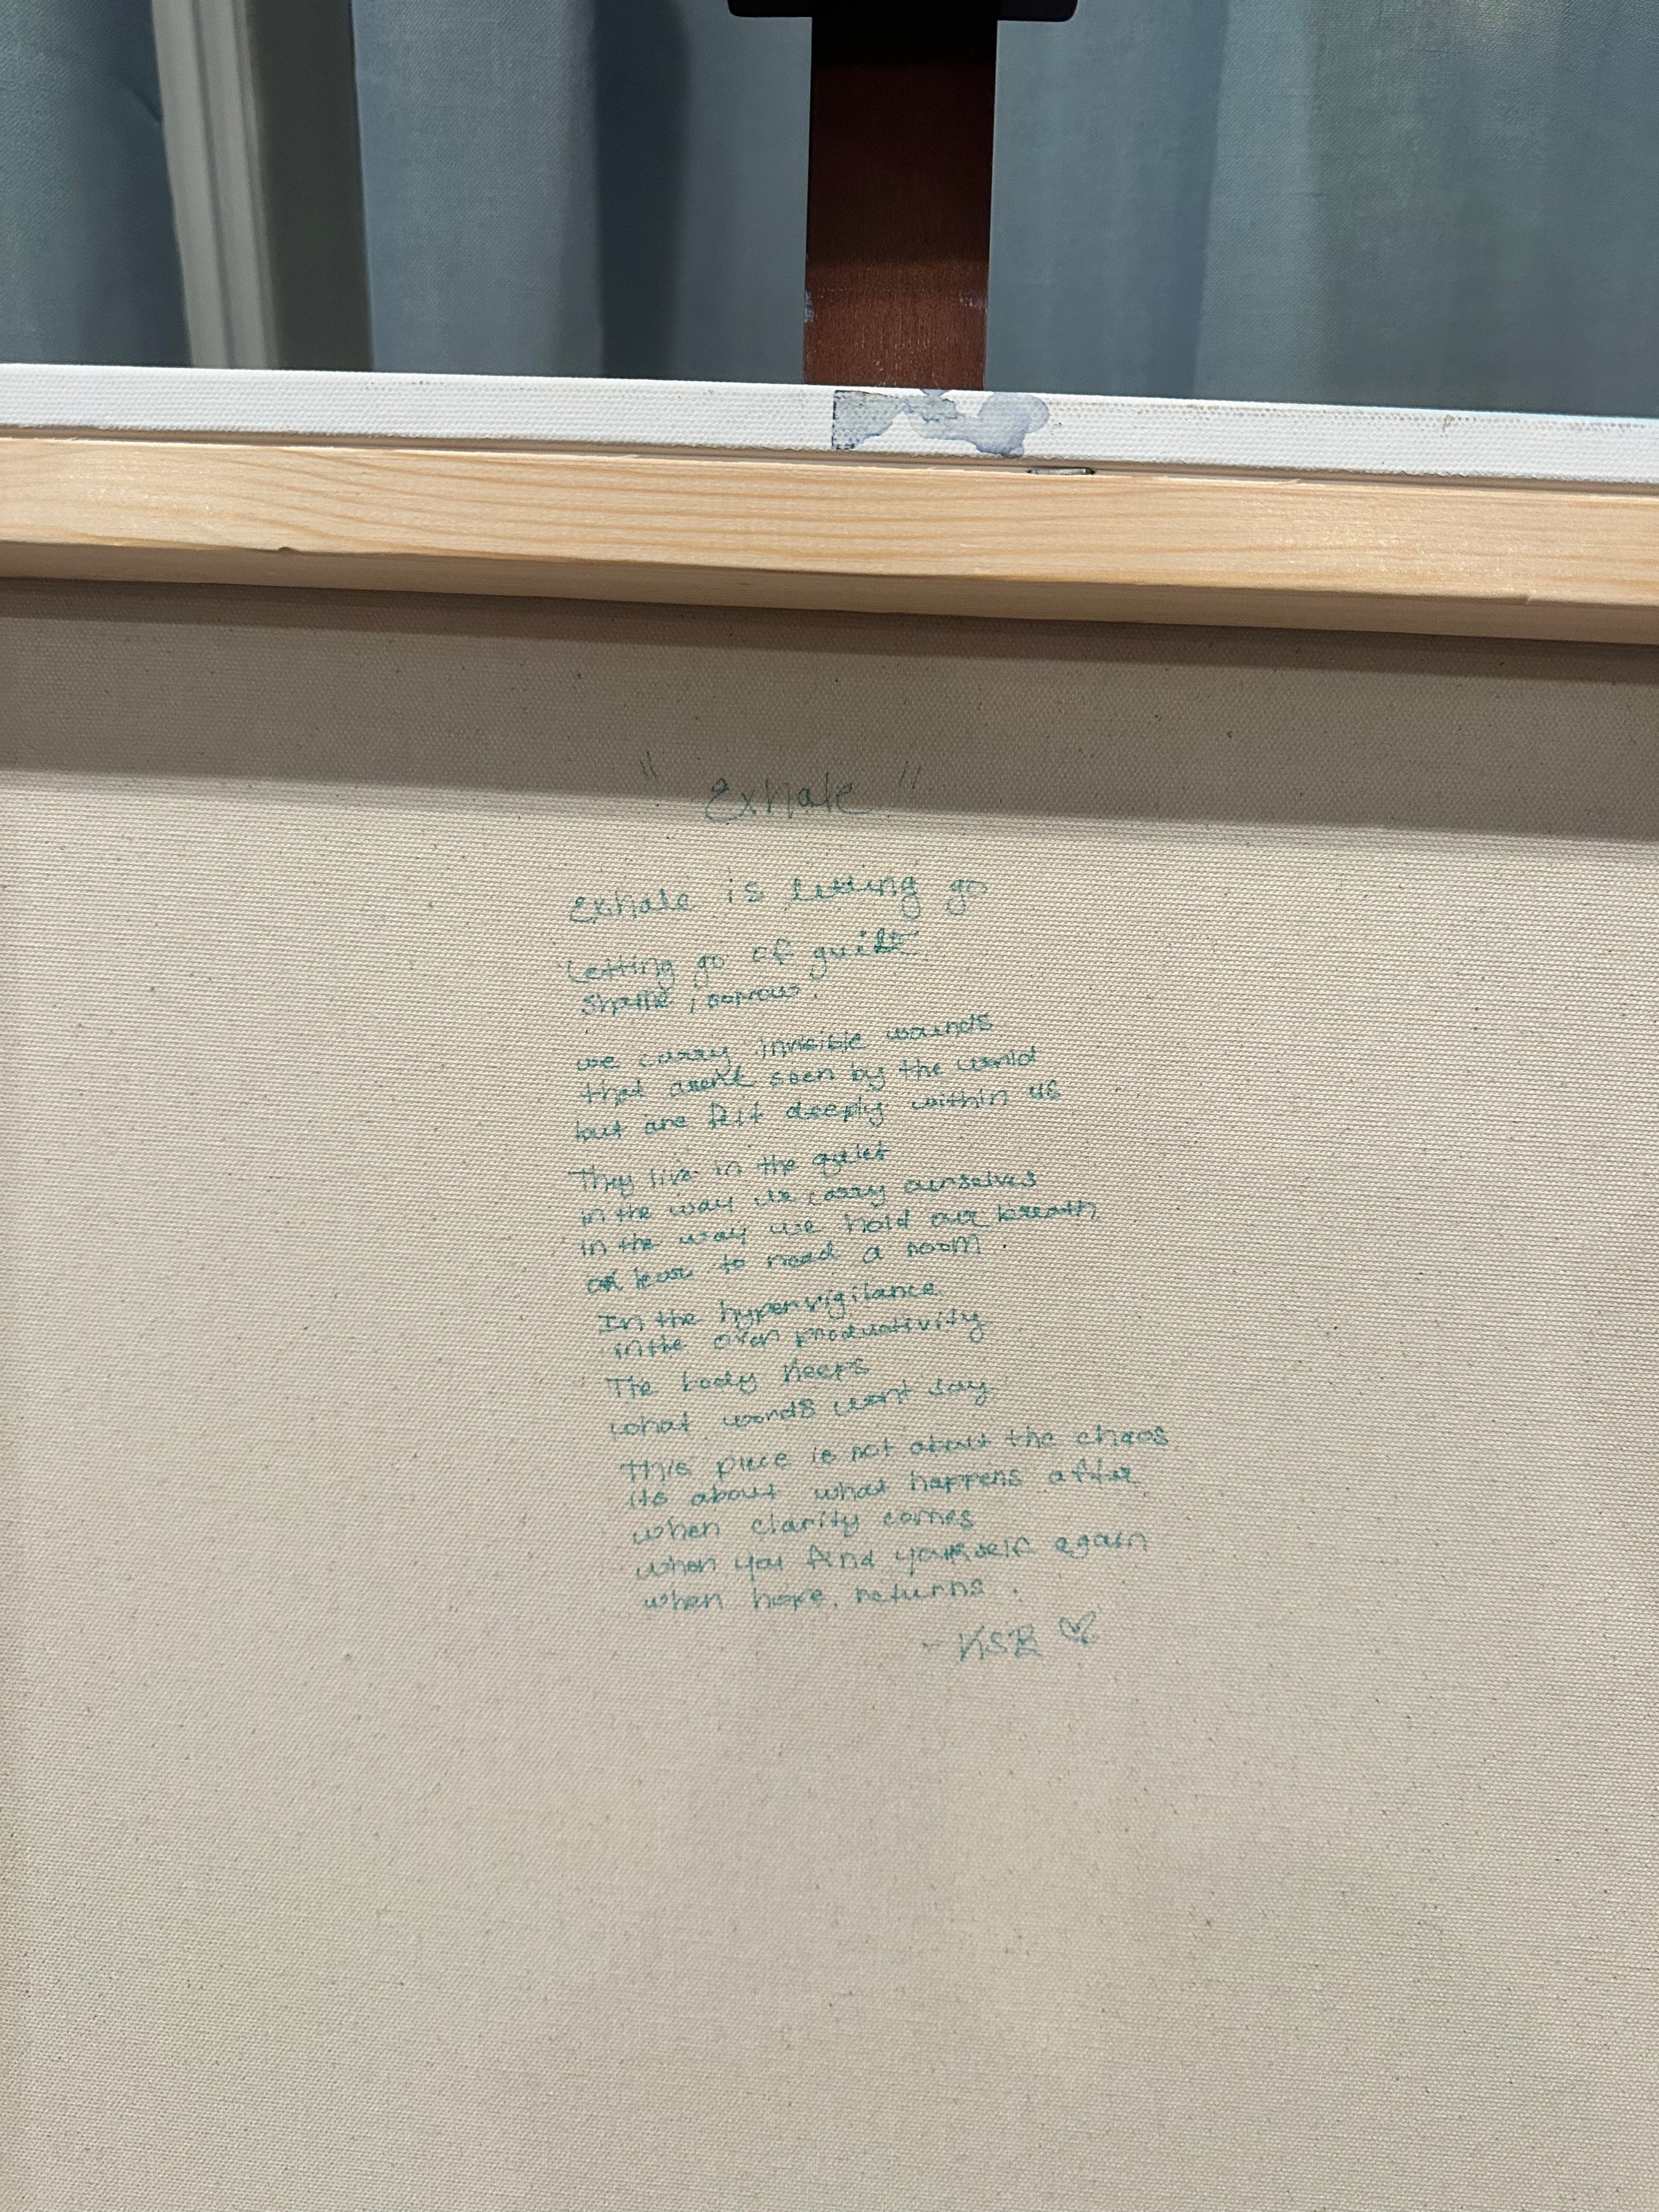 "Exhale"
Exhale is letting go
Letting go of guilt
Shame, sorrow.
we carry invisible wounds
that aren't seen by the world
but are felt deeply within us
They live in the quiet
in the way we carry ourselves
in the way we hold our breath
or learn to read a room.
In the hypervigilance
in the over productivity
The body keeps
what words wont say
This piece is not about the chaos
its about what happens after
when clarity comes
when you find yourself again
when hope returns.
- KSB ♡